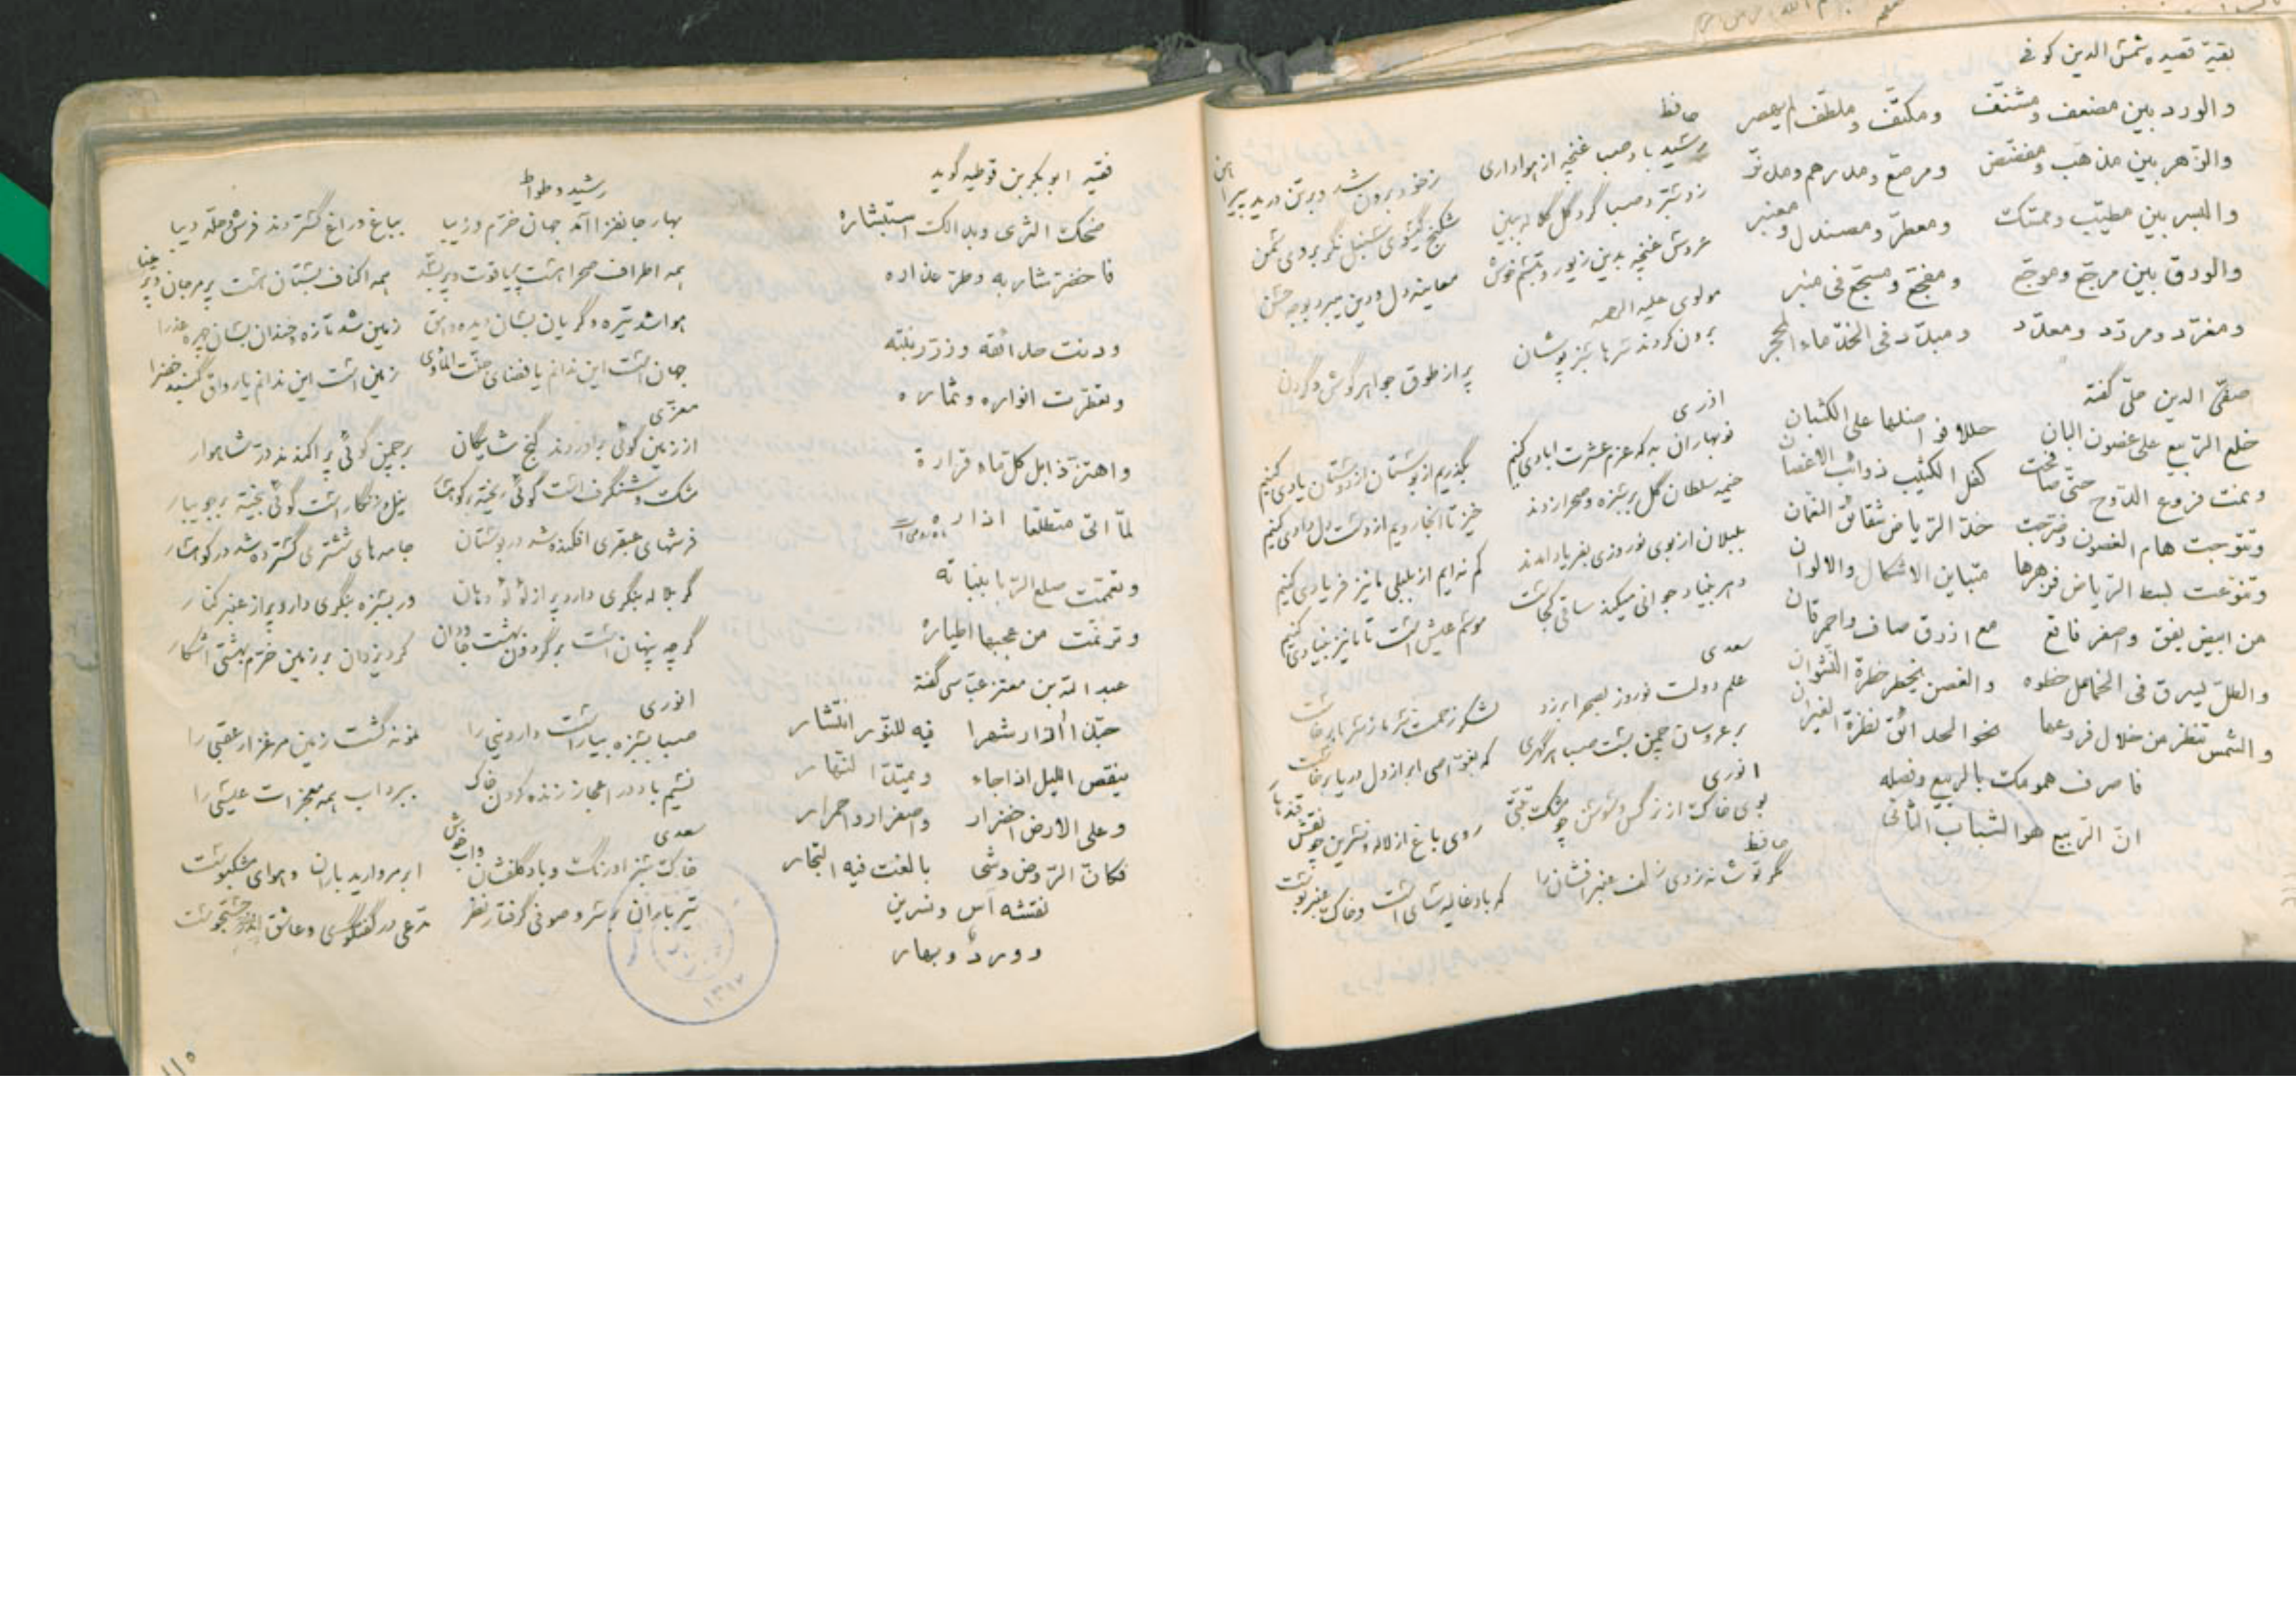 بقیة قصیده شمس الدین کوفی
والورد بین مضعف ومشنّف ومکتّف وملطّف لم یعصر
والزّهر بین مذهّب ومفضّض ومرصّع ومدرهم ومدنّر
والبسر بین مطیّب وممسّک ومعطّر ومصندل ومعنبر
والورق بین مرجّع وموجّع ومفجّع ومسجّع فی منبر
ومغرّد ومردّد ومعدّد ومبدّد فی الخدّ ماء المحجر
صفیّ الدین حلّی گفته
خلع الرّبیع علی غصون البان حللا فواضلها علی الکثبان
ونمت فروع الدّوح حتّی صافحت کفل الکثیب ذوائب الاغصان
وتتوّجت هام الغصون وضرّجت خدّ الرّیاض شقائق النعمان
وتنوّعت بسط الرّیاض فزهرها متباین الاشکال والالوان
من ابیض یقق واصفر فاقع مع ازرق صاف واحمر قان
والظلّ یسرق فی الخمائل خطوه والغصن یخطر خطرة النّشوان
والشمس تنظر من خلال فروعها نحو الحدائق نظرة الغیران
فاصرف همومک بالربیع وفصله
انّ الرّبیع هو الشباب الثانی
حافظ
رسید باد صبا غنچه از هواداری زخود برون شد و برتن درید پیراهن
عروس غنچه بدین زیور و تبسّم خوش معاینه دل و دین میبرد بوجه حسن
مولوی علیه الرحمه
برون کردند سرها سبز پوشان پر از طوق جواهر گوش و گردن
اذری
نوبهاران به که عزم عشرت ابادی کنیم بگذریم از بوستان از دوستان یادی کنیم
خیمه سلطان گل بر سبزه و صحرا زدند خیز تا انجا رویم از دست دل دادی کنیم
بلبلان از بوی نوروزی بفریاد امدند کم نه ایم از بلبلی ما نیز فریادی کنیم
دهر بنیاد جوانی میکند ساقی کجاست موسم عیش است تا ما نیز بنیادی کنیم
سعدی
علم دولت نوروز بصحرا برزد لشکر زحمت سرما ز سر ما برخاست
بر عروسان چمن بست صبا هر گهری که بغوّاصی ابر از دل دریا برخاست
انوری
بوی خاک از نرگس و سوسن چو مشک تبّتی روی باغ از لاله و نسرین چو نقش قندهار
حافظ
مگر تو شانه زدی زلف عنبر افشان را که باد غالیه سای است و خاک عنبر بوست
فقیه ابوبکر بن قوطیه گوید
ضحک الثری وبدا لک استبشاره
فاخضرّ شاربه وطرّ عذاره
ودنت حدائقه وزرّر نبته
وتفطّرت انواره وثماره
واهتزّ ذابل کلّ ماء قرارة
لمّا اتی متطلّعا اذاره
وتعمّمت صلع الرّبا بنباته
وترنّمت من عجبها اطیاره
عبد الله بن معتز عبّاسی گفته
حبّذا اذار شهرا فیه للنّور انتشار
ینقص اللیل اذا جاء ویمتدّ النهار
وعلی الارض اخضرار واصفرار واحمرار
فکانّ الرّوض وشی بالغت فیه التّجار
نقشه آس ونسرین
وورد وبهار
رشید وطواط
بهار جانفزا آمد جهان خرّم و زیبا بباغ و راغ گستردند فرش و حلّه دیبا
هوا شد تیره و گریان بسان دیده وامق زمین شد تازه و خندان بسان چهره عذرا
جهان است این ندانم یا فضای جنّت المأوی زمین است این ندانم یا رواق گنبد خضرا
معزّی
از زمین گوئی براوردند گنج شایگان بر چمن گوئی پراکندند درّ شاهوار
مشک و شنگرف است گوئی ریخته بر کوهسار نیل و زنگار است گوئی بیخته بر جویبار
فرشهای عبقری افکنده شد در بوستان جامه های ششتری گسترده شد در کوهسار
گر بلاله بنگری دارد پر از لؤلؤ دهان ور بسبزه بنگری دارد پر از عنبر کنار
گرچه پنهان است بر گردون بهشت جاودان کرد یزدان بر زمین خرّم بهشتی اشکار
انوری
صبا بسبزه بیاراست دار دنیی را نمونه گشت زمین مرغزار عقبی را
نسیم باد در اعجاز زنده کردن خاک ببرد اب همه معجزات عیسی را
سعدی
خاک سبز ارنگ و باد گلفشان واب خوش ابر مروارید باران و هوای مشکبوست
تیر باران بر سر و صوفی گرفتار نظر مدّعی در گفتگوی و عاشق اندر جستجوست
۱۳۱۲
۱۱۵